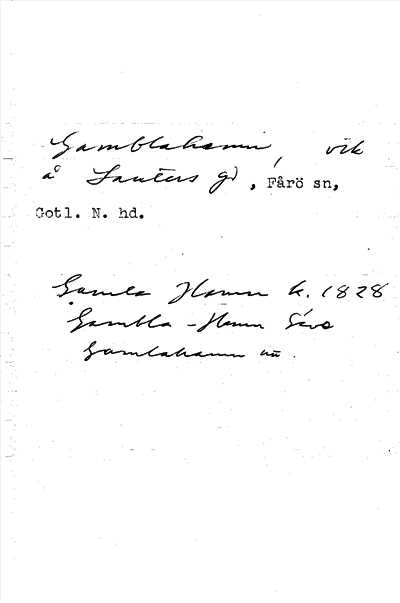 Gamblahamn, vik
å Lauters gd, Fårö sn,
Gotl. N. hd.
Gamla Hamn k. 1828
Gambla-Hamn Säve
Gamlahamn